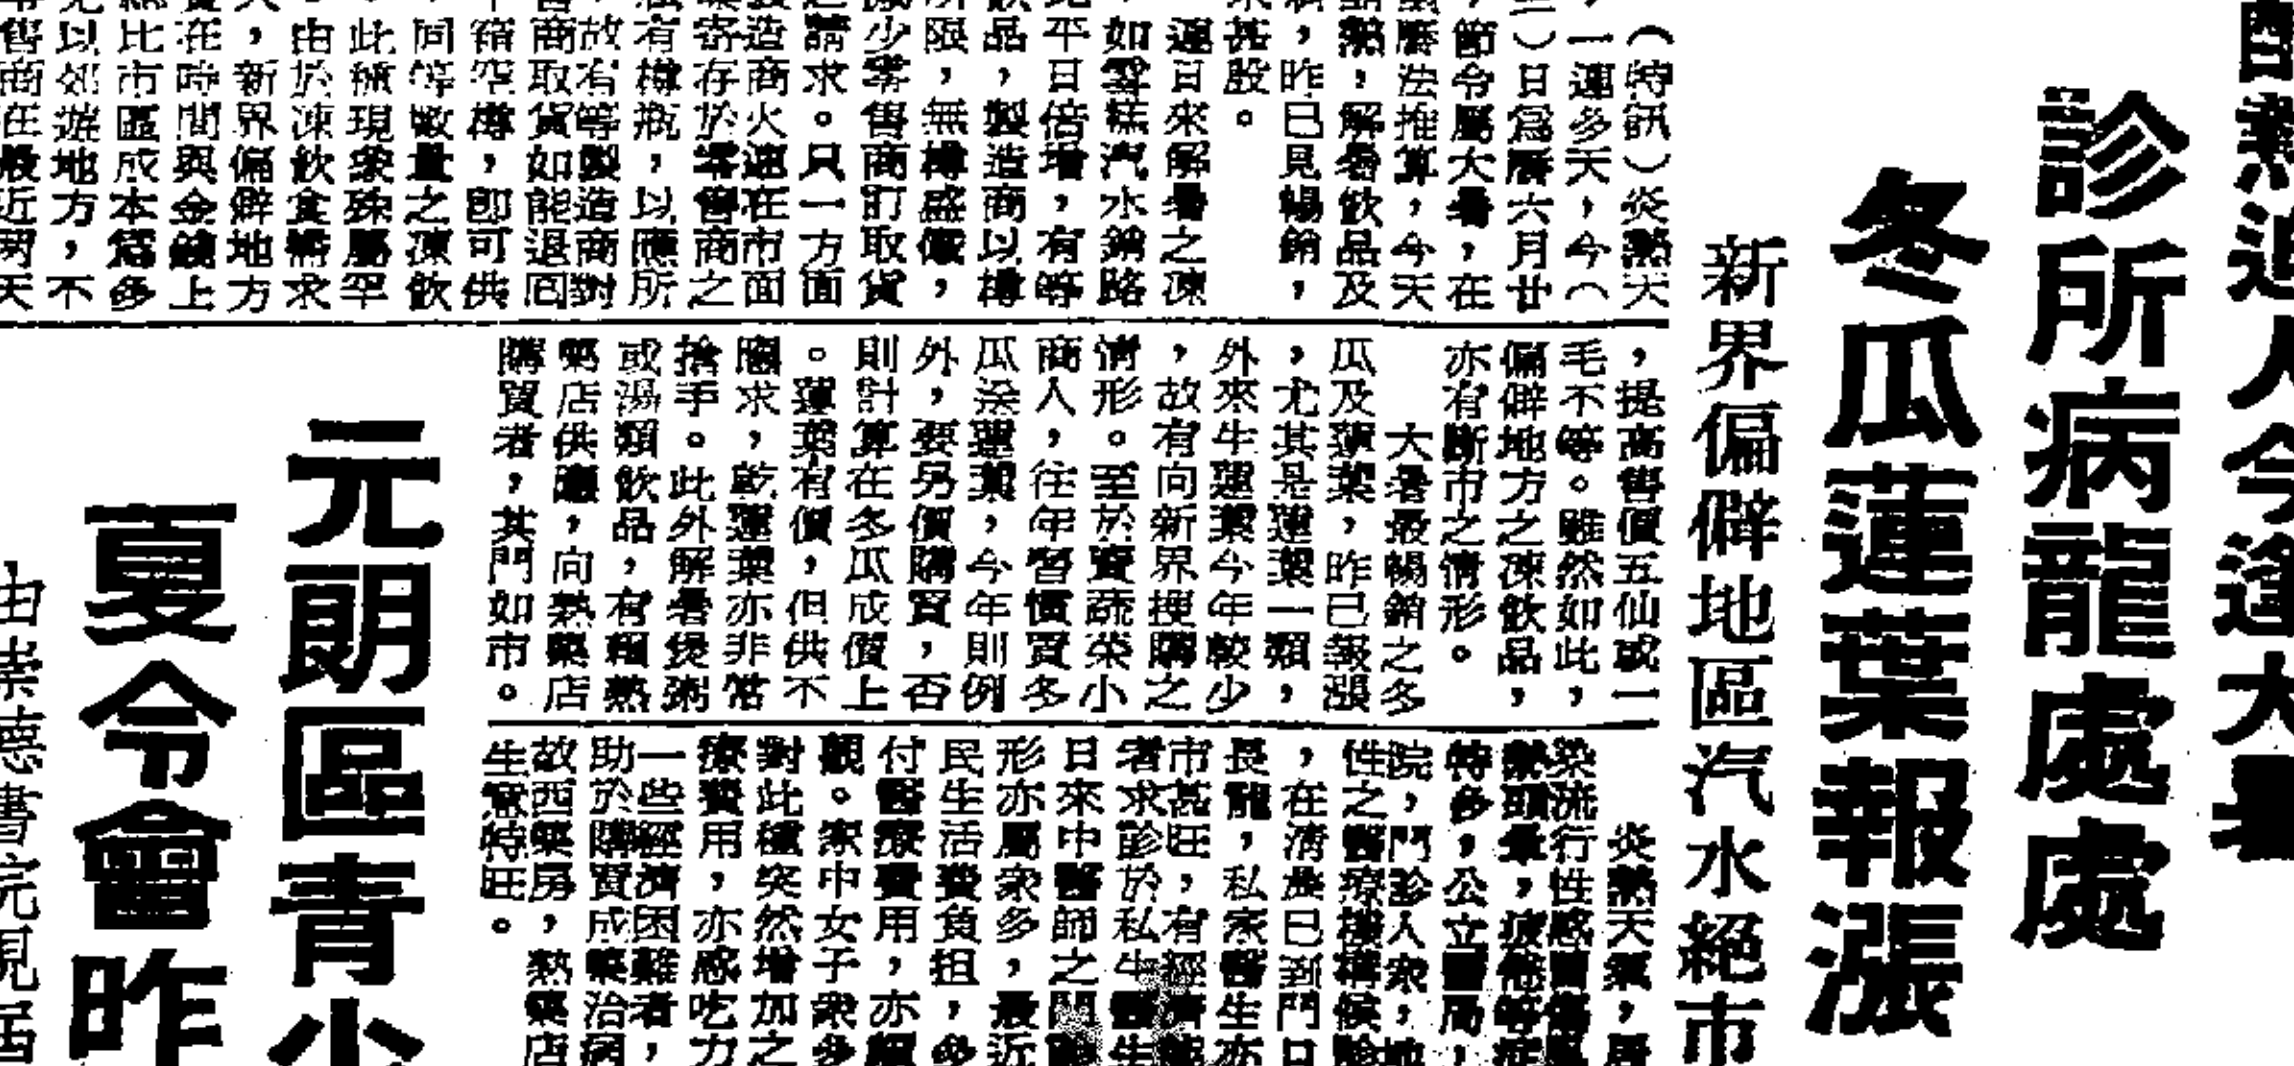 熱迫人今逢大暑
診所病龍處處
冬瓜蓮葉報漲
新界偏僻地區汽水絕市
（特訊）炎熱天
，一連多天，今（
）日爲曆六月廿
，節令屬大暑，在
曆法推算，今天
熱，解暑飲品及
，昨已見暢銷，
甚殷。
連日來解暑之凍
，如雪糕汽水銷路
平日倍增，有等
飲品，製造商以樽
所限，無樽盛儎，
少零售商訂取貨
請求。只一方面
造商火速在市面
寄存於零售商之
有樽瓶，以應所
故有等製造商對
商取貨如能退囘
箱空樽，卽可供
同等數量之凍飲
此種現象殊屬罕
由於凍飲食需求
，新界偏僻地方
在時間與金錢上
比市區成本爲多
以郊遊地方，不
售商在最近兩天
，提高售價五仙或一
毛不等。雖然如此，
偏僻地方之凍飲品，
亦有斷市之情形。
大暑最暢銷之冬
瓜及蓮葉，昨已報漲
，尤其是蓮葉一類，
外來生蓮葉今年較少
，故有向新界搜購之
情形。至於賣蔬菜小
商人，往年習慣買多
瓜送蓮葉，今年則例
外，要另價購買，否
則計算在冬瓜成價上
。蓮葉有價，但供不
應求，乾蓮葉亦非常
搶手。此外解暑煲粥
或湯類飲品，有 熱
藥店供應，向熱藥店
購買者，其門如市。
炎熱天氣，
染流行性感冒傷風
頭暈，疲倦等症
特多，公立醫局，
院，門診人衆，
性之醫療機構候診
，在清晨已到門口
長龍，私家醫生亦
市甚旺，有經濟能
者求診於私生醫生
日來中醫師之門
形亦屬衆多，最近
民生活費負担，多
付醫療費用，亦頗
觀。家中女子衆多
對此種突然增加之
療費用，亦感吃力
一些經濟困難者，
助於購買成藥治病
故西藥房，熱藥店
生意特旺。
元朗區青少
夏令會昨
由崇德書院現屆